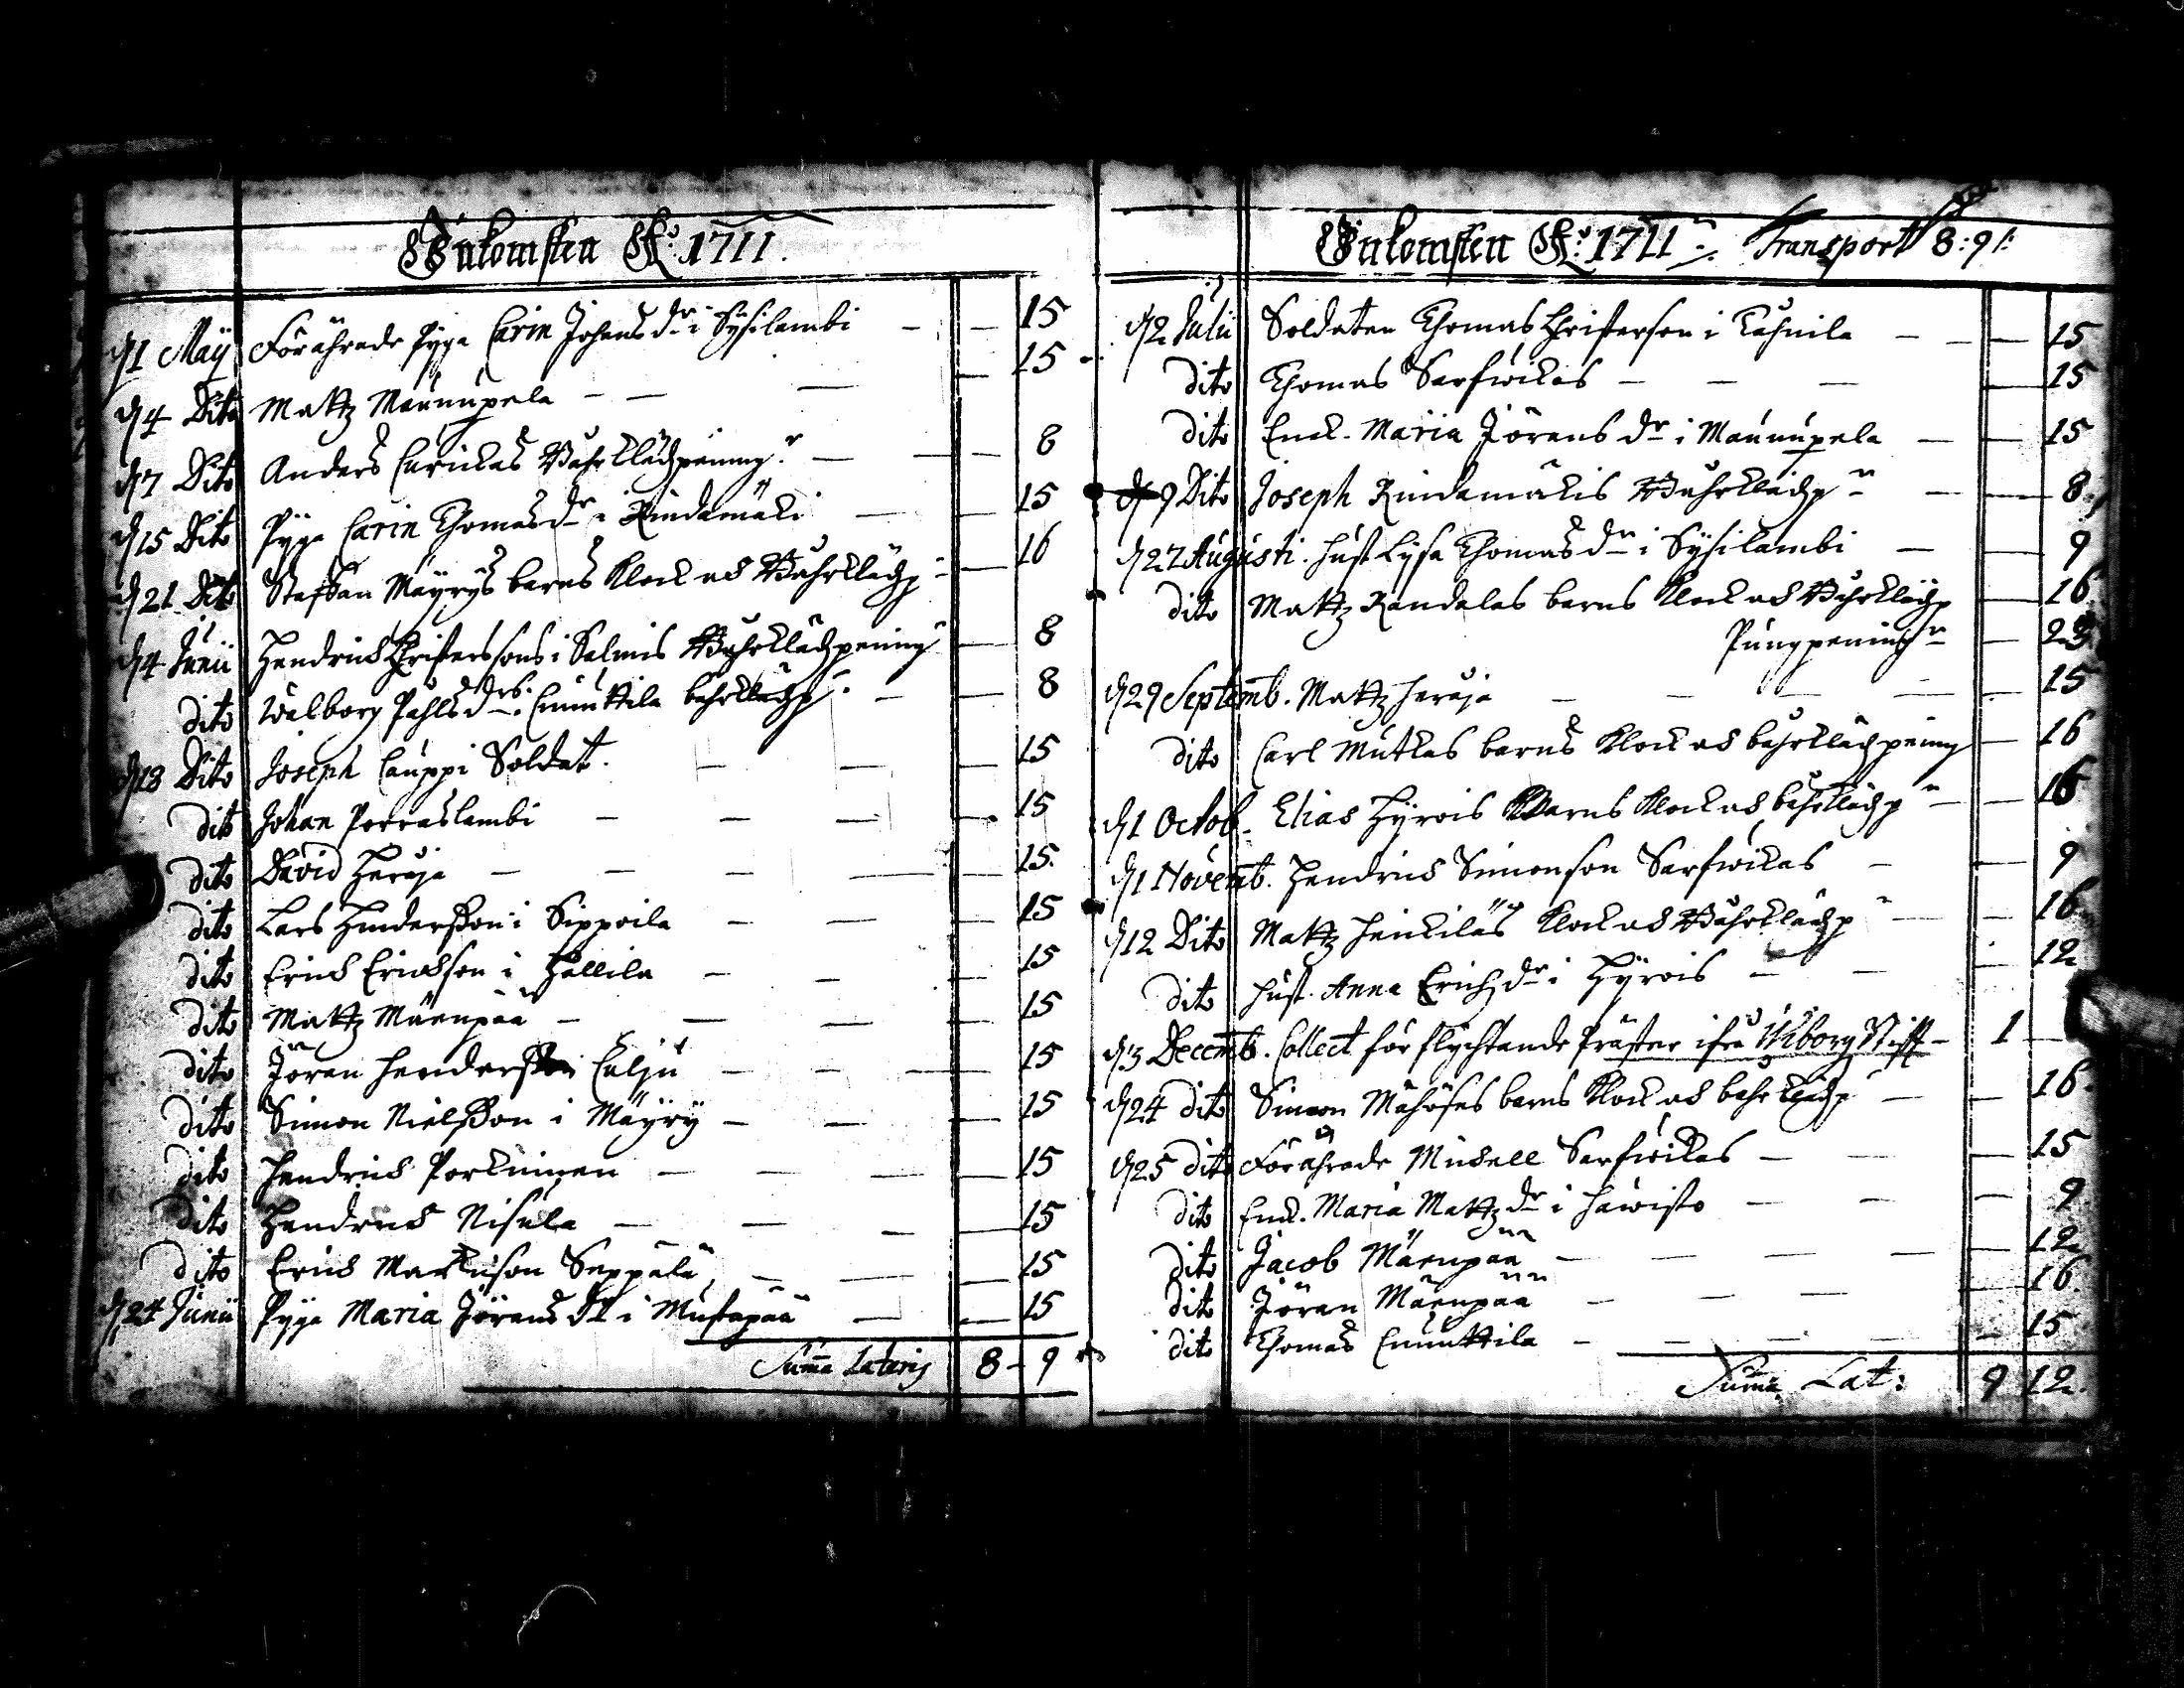 Inkomsten A:o 1711.
d 1 Maÿ Förährade Pÿga Carin Johans dr i Sÿsilambi — — 15
d 4 Dito Mattz Maunupela — — — 15
d 7 Dito Anders Caricas Båhrklädzpening:r — — 8
d 15 Dito Pÿga Carin Thomas dr i Rindamäki — 15
d 21 Dito Staffan Mäyrÿs barns Klock och Båhrklädzp — 16
d 4 Junii Hendrich Christerssons i Salmis Båhrklädzpening — 8
dito Walborg Påhls drs. Cunuttila båhrklädzp — — 8
d 18 Dito Joseph Cauppi Soldat. — — — 15
dito Johan Porraslambi — — — 15
dito David Heruja — — — 15.
dito Lars Hinderßon i Sippoila — — — 15
dito Erich Erichson i Hallila — — — 15
dito Mattz Mäenpää — — — — 15
dito Jöran Henderßon Calju — — — 15
dito Simon Nielßon i Mäyrÿ — — — 15
dito Hendrich Porkuinen — — — 15
dito Hendrich Nisula — — — 15
dito Erich Markuson Seppälä — — — 15
d 24 Junii Pÿga Maria Jörans dr i Mustapää — — 15
Summa Lateris 8 – 9
Inkomsten A:o 1711 Transport 8:9/:
d 2 Julii Soldaten Thomas Christerson i Cahnila — — 15
dito Thomas Sarfwikas — — — 15
dito Enck. Maria Jörans dr i Maunupela — — 15
d 9 Dito Joseph Rindamäkis Båhrklädzp — — 8
d 27 Augusti. Hust Lÿsa Thomas dr i Sÿsilambi — — 9
dito Mattz Randalas barns Klock och Båhrklädzp — 16
Pungpeningr — 23
d 29 Septemb. Mattz Heruja — — — — 15
dito Carl Mutkas barns Klock och båhrklädzpening — 16
d 1 Octob. Elias Hÿrois Barns Klock och båhrklädzp — 16
d 1 Novemb. Hendrich Simonson Sarfwikas — — 9
d 12 Dito Mattz Heickiläs Klock och Båhrklädzp — — 16
dito Hust. Anna Erichz dr i Hÿrois — — — 12
d 3 Decemb. Collect för flychtande Präster ifrå Wiborg Stifft — 1 —
d 24 dito Simon Mähöses barns Klock och båhrklädzp — — 16.
d 25 dito Förährade Michell Sarfwikas — — — 15
dito Enck. Maria Mattz dr i Hawisto — — — 9
dito Jacob Mäenpää — — — — 12
dito Jöran Mäenpää — — — — 16.
dito Thomas Cunuttila — — — — 15
Summa Lat: 9 12.